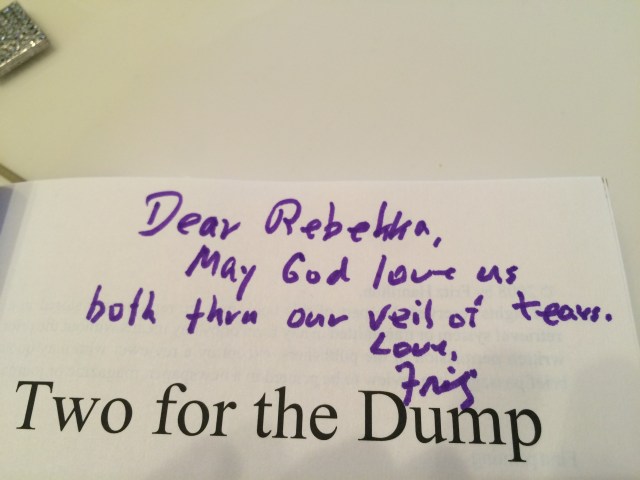 Dear Rebekka,
May God love us
both thru our veil of tears.
Love,
Two for the Dump